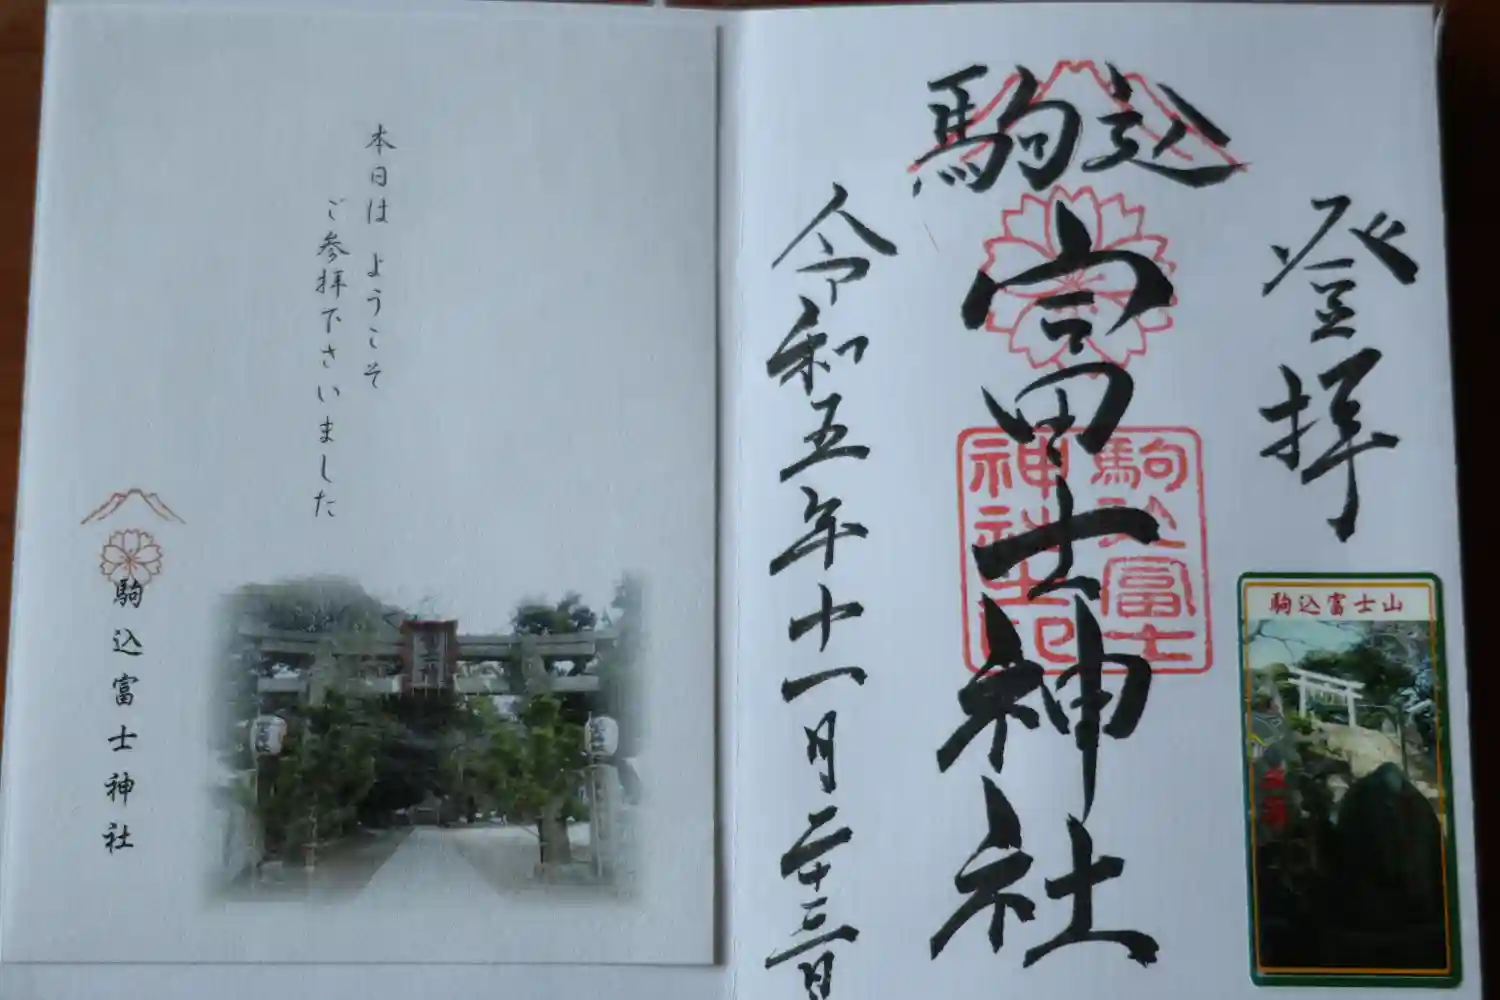 本日は ようこそ
ご参拝下さいました
駒込富士神社
登拝
駒込
富士神社
令和五年十一月二十三日
駒込富士
神社
駒込富士山